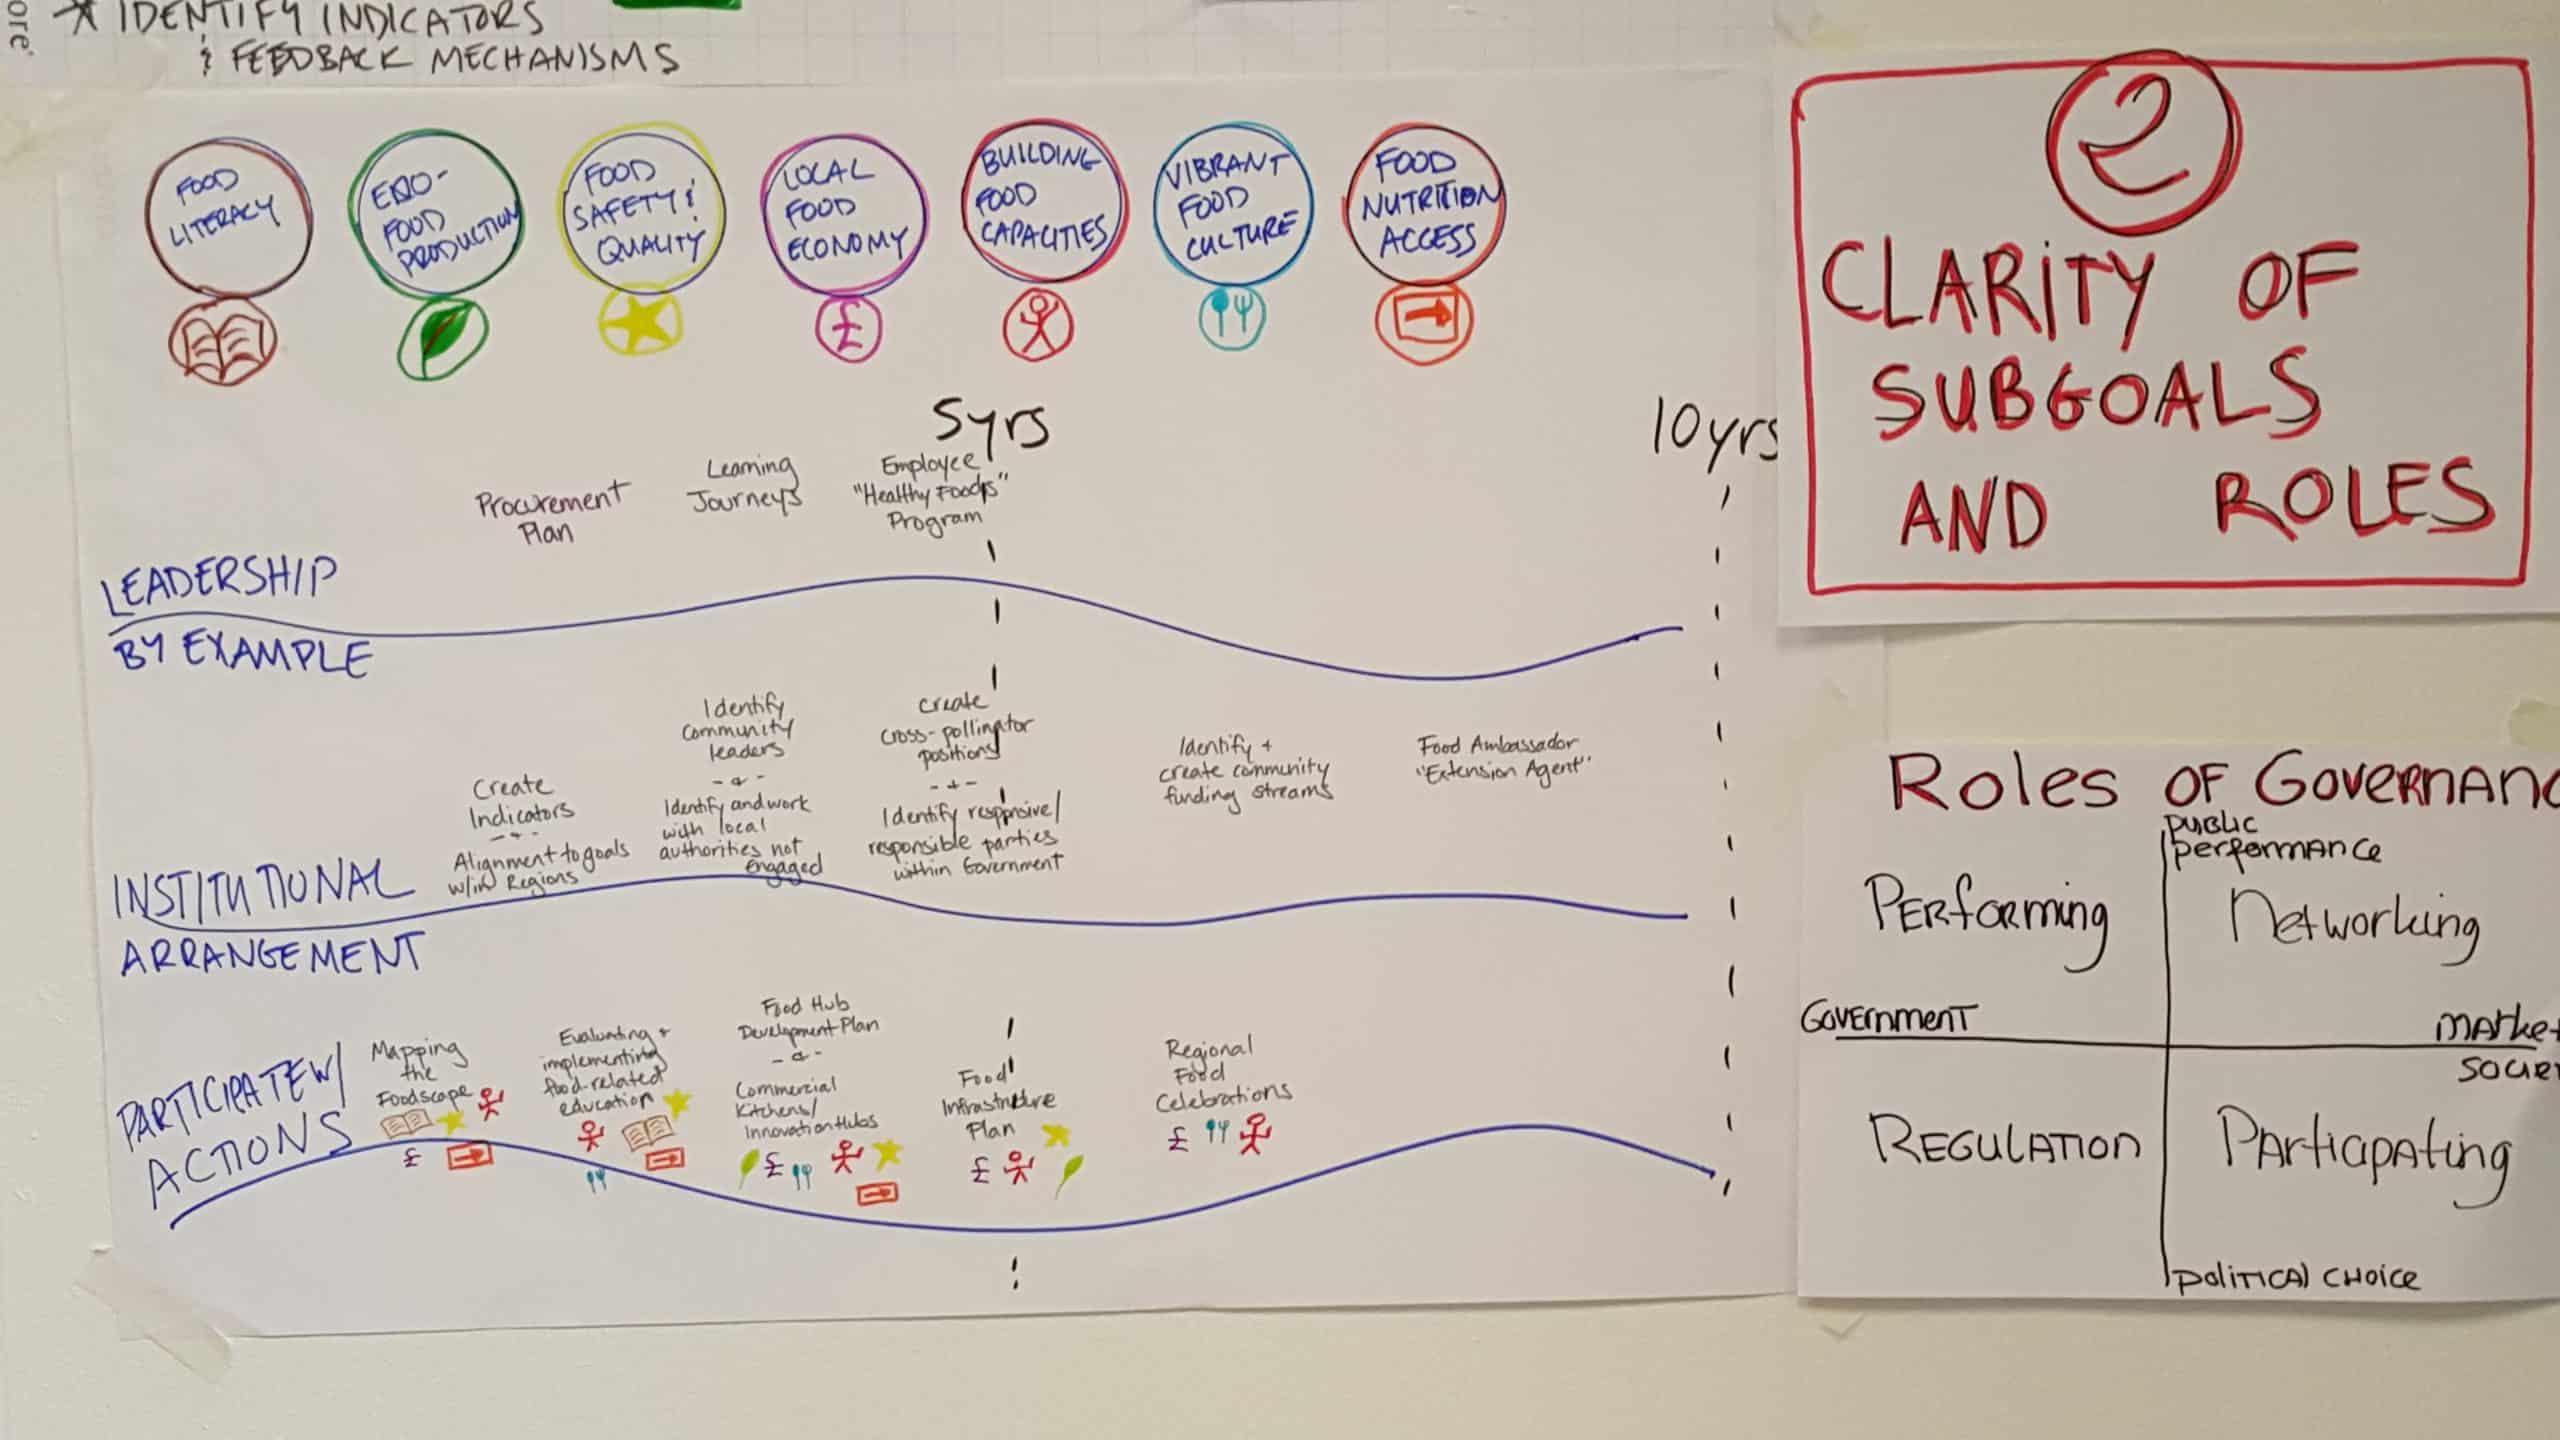 ore.
* IDENTIFY INDICATORS
& FEEDBACK MECHANISMS
FOOD
LITERACY
FOOD
PRODUCTION
FOOD
SAFETY &
QUALITY
LOCAL
FOOD
ECONOMY
BUILDING
FOOD
CAPACITIES
VIBRANT
FOOD
CULTURE
FOOD
NUTRITION
ACCESS
£
5yrs
10yrs
Procurement
Plan
Learning
Journeys
Employee
"Healthy Foods"
Program
LEADERSHIP
BY EXAMPLE
Create
Indicators
- + -
Alignment to goals
w/in Regions
Identify
Community
leaders
- & -
Identify and work
with local
authorities not
engaged
Create
cross-pollinator
positions
- + -
Identify responsive/
responsible parties
within Government
Identify +
create community
funding streams
Food Ambassador
"Extension Agent"
INSTITUTIONAL
ARRANGEMENT
PARTICIPATE W/
ACTIONS
Mapping
the
Foodscape
£
Evaluating +
implementing
food-related
education
Food Hub
Development Plan
- & -
Commercial
Kitchens/
Innovation Hubs
£
Food
Infrastructure
Plan
£
Regional
Food
Celebrations
£
2
CLARITY OF
SUBGOALS
AND ROLES
Roles OF GOVERNANC
PUBLIC
performance
PERforming
Networking
GOVERNMENT
MARKET
SOCIE
REGULATION
PARticipAting
POLITICAL CHOICE